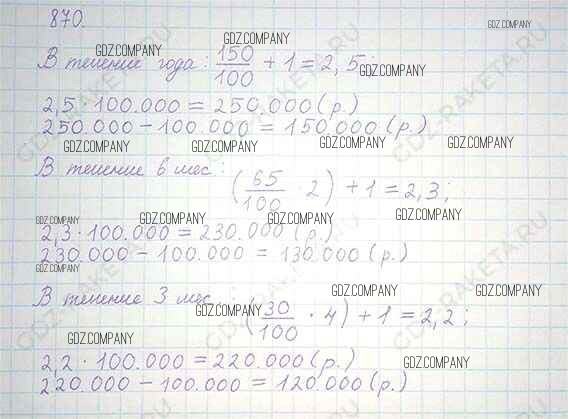 870.
GDZ.COMPANY
GDZ.COMPANY
GDZ.COMPANY
В течение года: 150/100 + 1 = 2,5;
GDZ.COMPANY
2,5 · 100.000 = 250.000 (р.)
250.000 – 100.000 = 150.000 (р.)
GDZ.COMPANY GDZ.COMPANY GDZ.COMPANY GDZ.COMPANY
В течение 6 мес.: (65/100 · 2) + 1 = 2,3;
GDZ.COMPANY GDZ.COMPANY GDZ.COMPANY GDZ.COMPANY
2,3 · 100.000 = 230.000 (р.)
230.000 – 100.000 = 130.000 (р.)
GDZ.COMPANY
GDZ.COMPANY GDZ.COMPANY
В течение 3 мес. (30/100 · 4) + 1 = 2,2;
GDZ.COMPANY
GDZ.COMPANY
2,2 · 100.000 = 220.000 (р.)
GDZ.COMPANY
220.000 – 100.000 = 120.000 (р.)
GDZ-RAKETA.RU
GDZ-RAKETA.RU
GDZ-RAKETA.RU
GDZ-RAKETA.RU